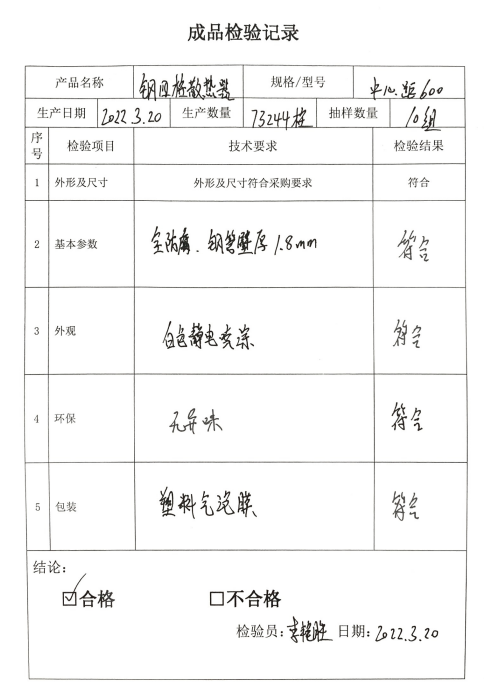 成品检验记录
产品名称 钢四柱散热器 规格/型号 中心距600
生产日期 2022.3.20 生产数量 73244柱 抽样数量 10组
序号 检验项目 技术要求 检验结果
1 外形及尺寸 外形及尺寸符合采购要求 符合
2 基本参数 全防腐、钢管壁厚1.8mm 符合
3 外观 白色静电喷涂 符合
4 环保 无异味 符合
5 包装 塑料气泡膜 符合
结论:
☑合格 □不合格
检验员: 日期:2022.3.20